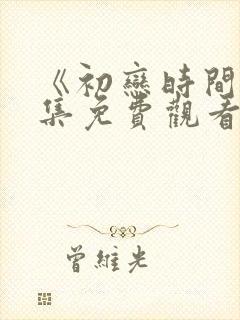 《初戀時間
集免費觀看
曾維光